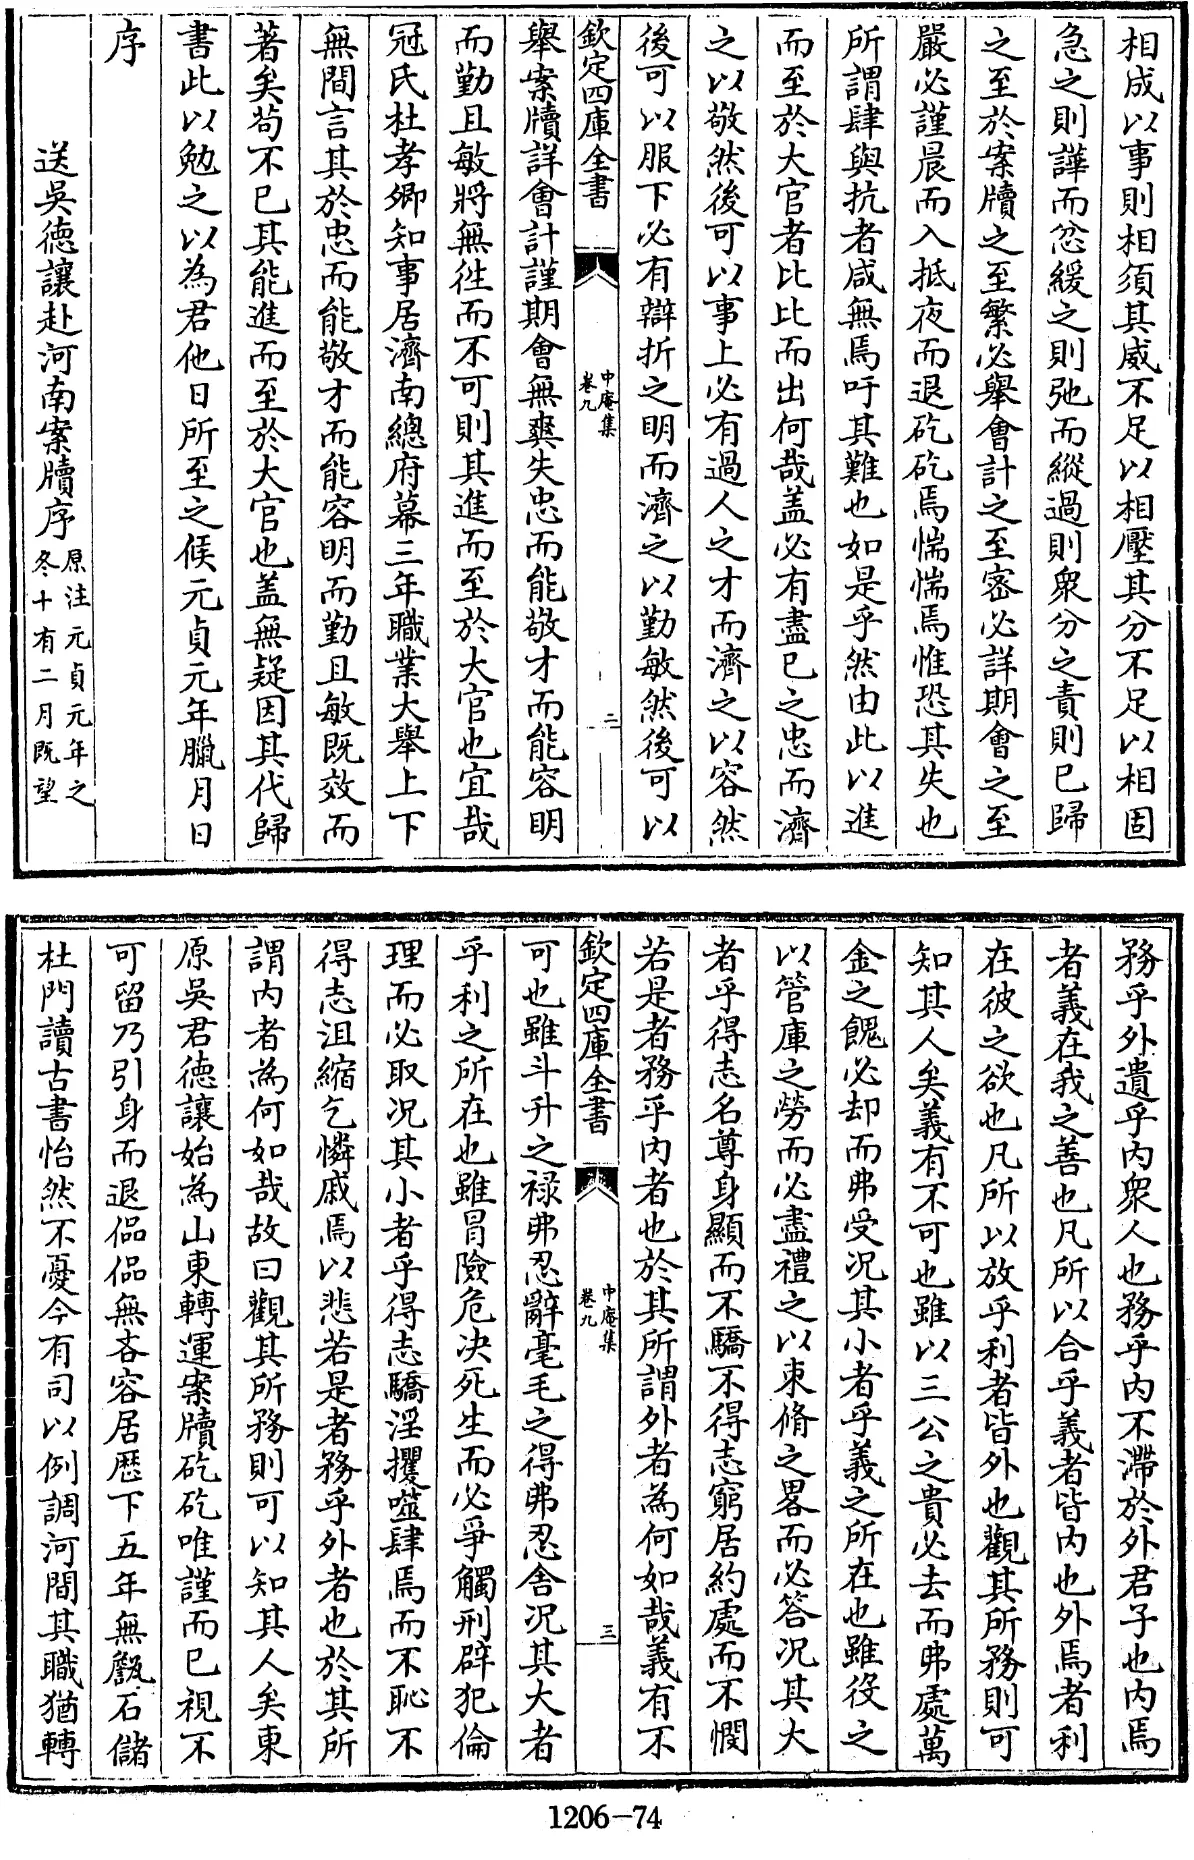 相成以事則相須其威不足以相壓其分不足以相固
急之則譁而忿緩之則弛而縱過則衆分之責則已歸
之至於案牘之至繁必舉會計之至宻必詳期會之至
嚴必謹晨而入抵夜而退矻矻焉惴惴焉惟恐其失也
所謂肆與抗者咸無焉吁其難也如是乎然由此以進
而至於大官者比比而出何哉盖必有盡已之忠而濟
之以敬然後可以事上必有過人之才而濟之以容然
後可以服下必有辯折之明而濟之以勤敏然後可以
欽定四庫全書
中庵集
卷九
二
舉案牘詳會計謹期會無爽失忠而能敬才而能容明
而勤且敏將無徃而不可則其進而至於大官也宜哉
冠氏杜孝卿知事居濟南總府幕三年職業大舉上下
無間言其於忠而能敬才而能容明而勤且敏既效而
著矣苟不已其能進而至於大官也盖無疑因其代歸
書此以勉之以為君他日所至之候元貞元年臘月日
序
送吳德讓赴河南案牘序
原注元貞元年之
冬十有二月既望
務乎外遺乎内衆人也務乎内不滯於外君子也内焉
者義在我之善也凡所以合乎義者皆内也外焉者利
在彼之欲也凡所以放乎利者皆外也觀其所務則可
知其人矣義有不可也雖以三公之貴必去而弗處萬
金之餽必却而弗受况其小者乎義之所在也雖役之
以管庫之勞而必盡禮之以束脩之畧而必答况其大
者乎得志名尊身顯而不驕不得志窮居約處而不憫
若是者務乎内者也於其所謂外者為何如哉義有不
欽定四庫全書
中庵集
卷九
三
可也雖斗升之禄弗忍辭毫毛之得弗忍舍况其大者
乎利之所在也雖冒險危决死生而必爭觸刑辟犯倫
理而必取况其小者乎得志驕淫攫噬肆焉而不恥不
得志沮縮乞憐戚焉以悲若是者務乎外者也於其所
謂内者為何如哉故曰觀其所務則可以知其人矣東
原吳君德讓始為山東轉運案牘矻矻唯謹而已視不
可留乃引身而退偘偘無吝容居厯下五年無甔石儲
杜門讀古書怡然不憂今有司以例調河間其職猶轉
1206-74